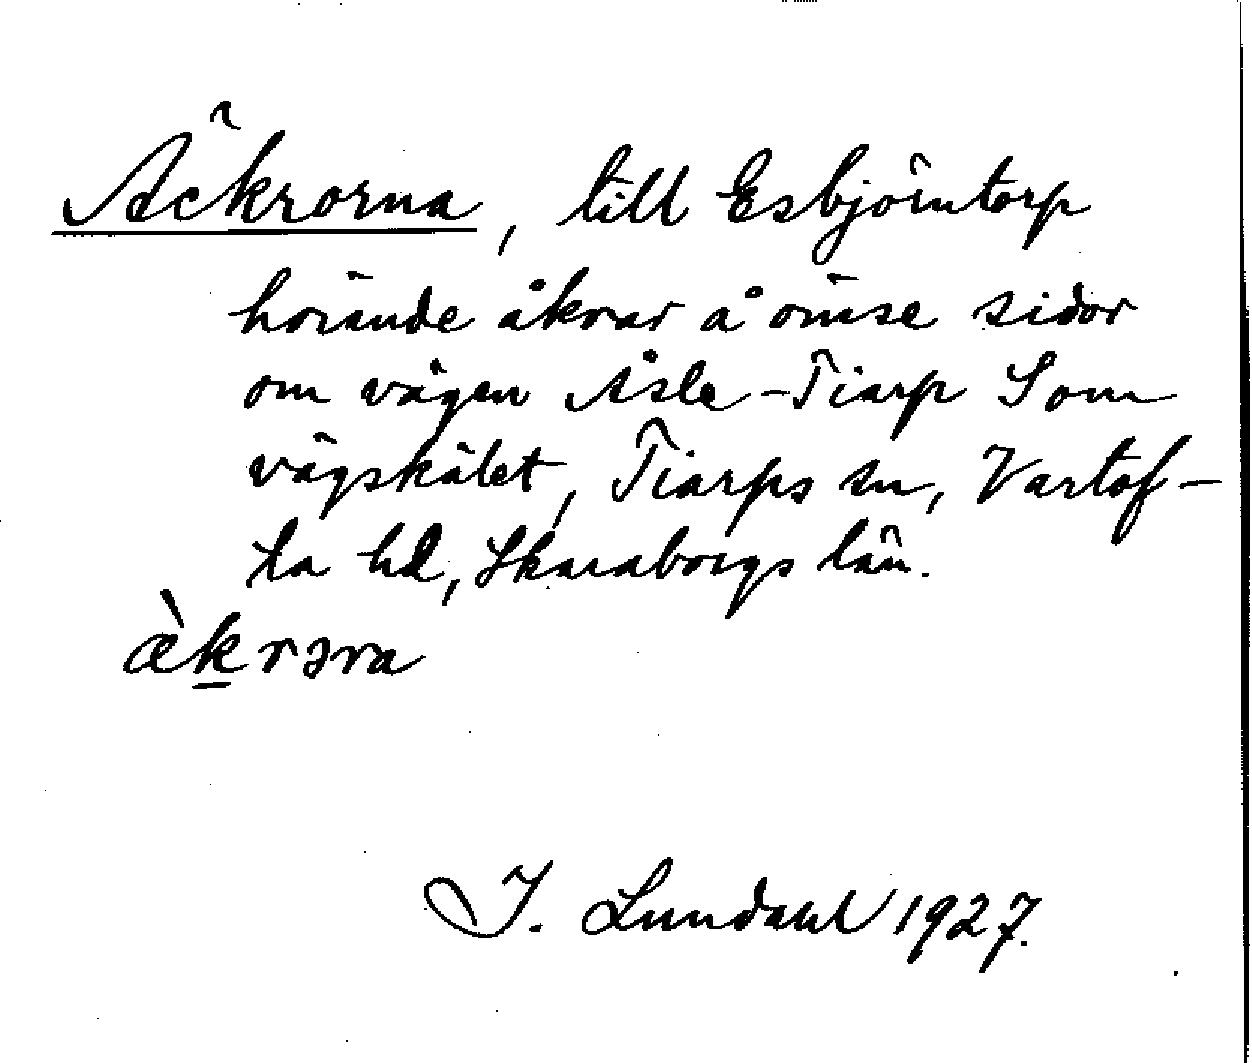 Äckrorna, till Esbjörntorp
hörande åkrar å ömse sidor
om vägen Åsle-Tiarp Som
vägskälet, Tiarps sn, Vartof-
ta hd, Skaraborgs län.
æ̀krəra
I. Lundahl 1927.